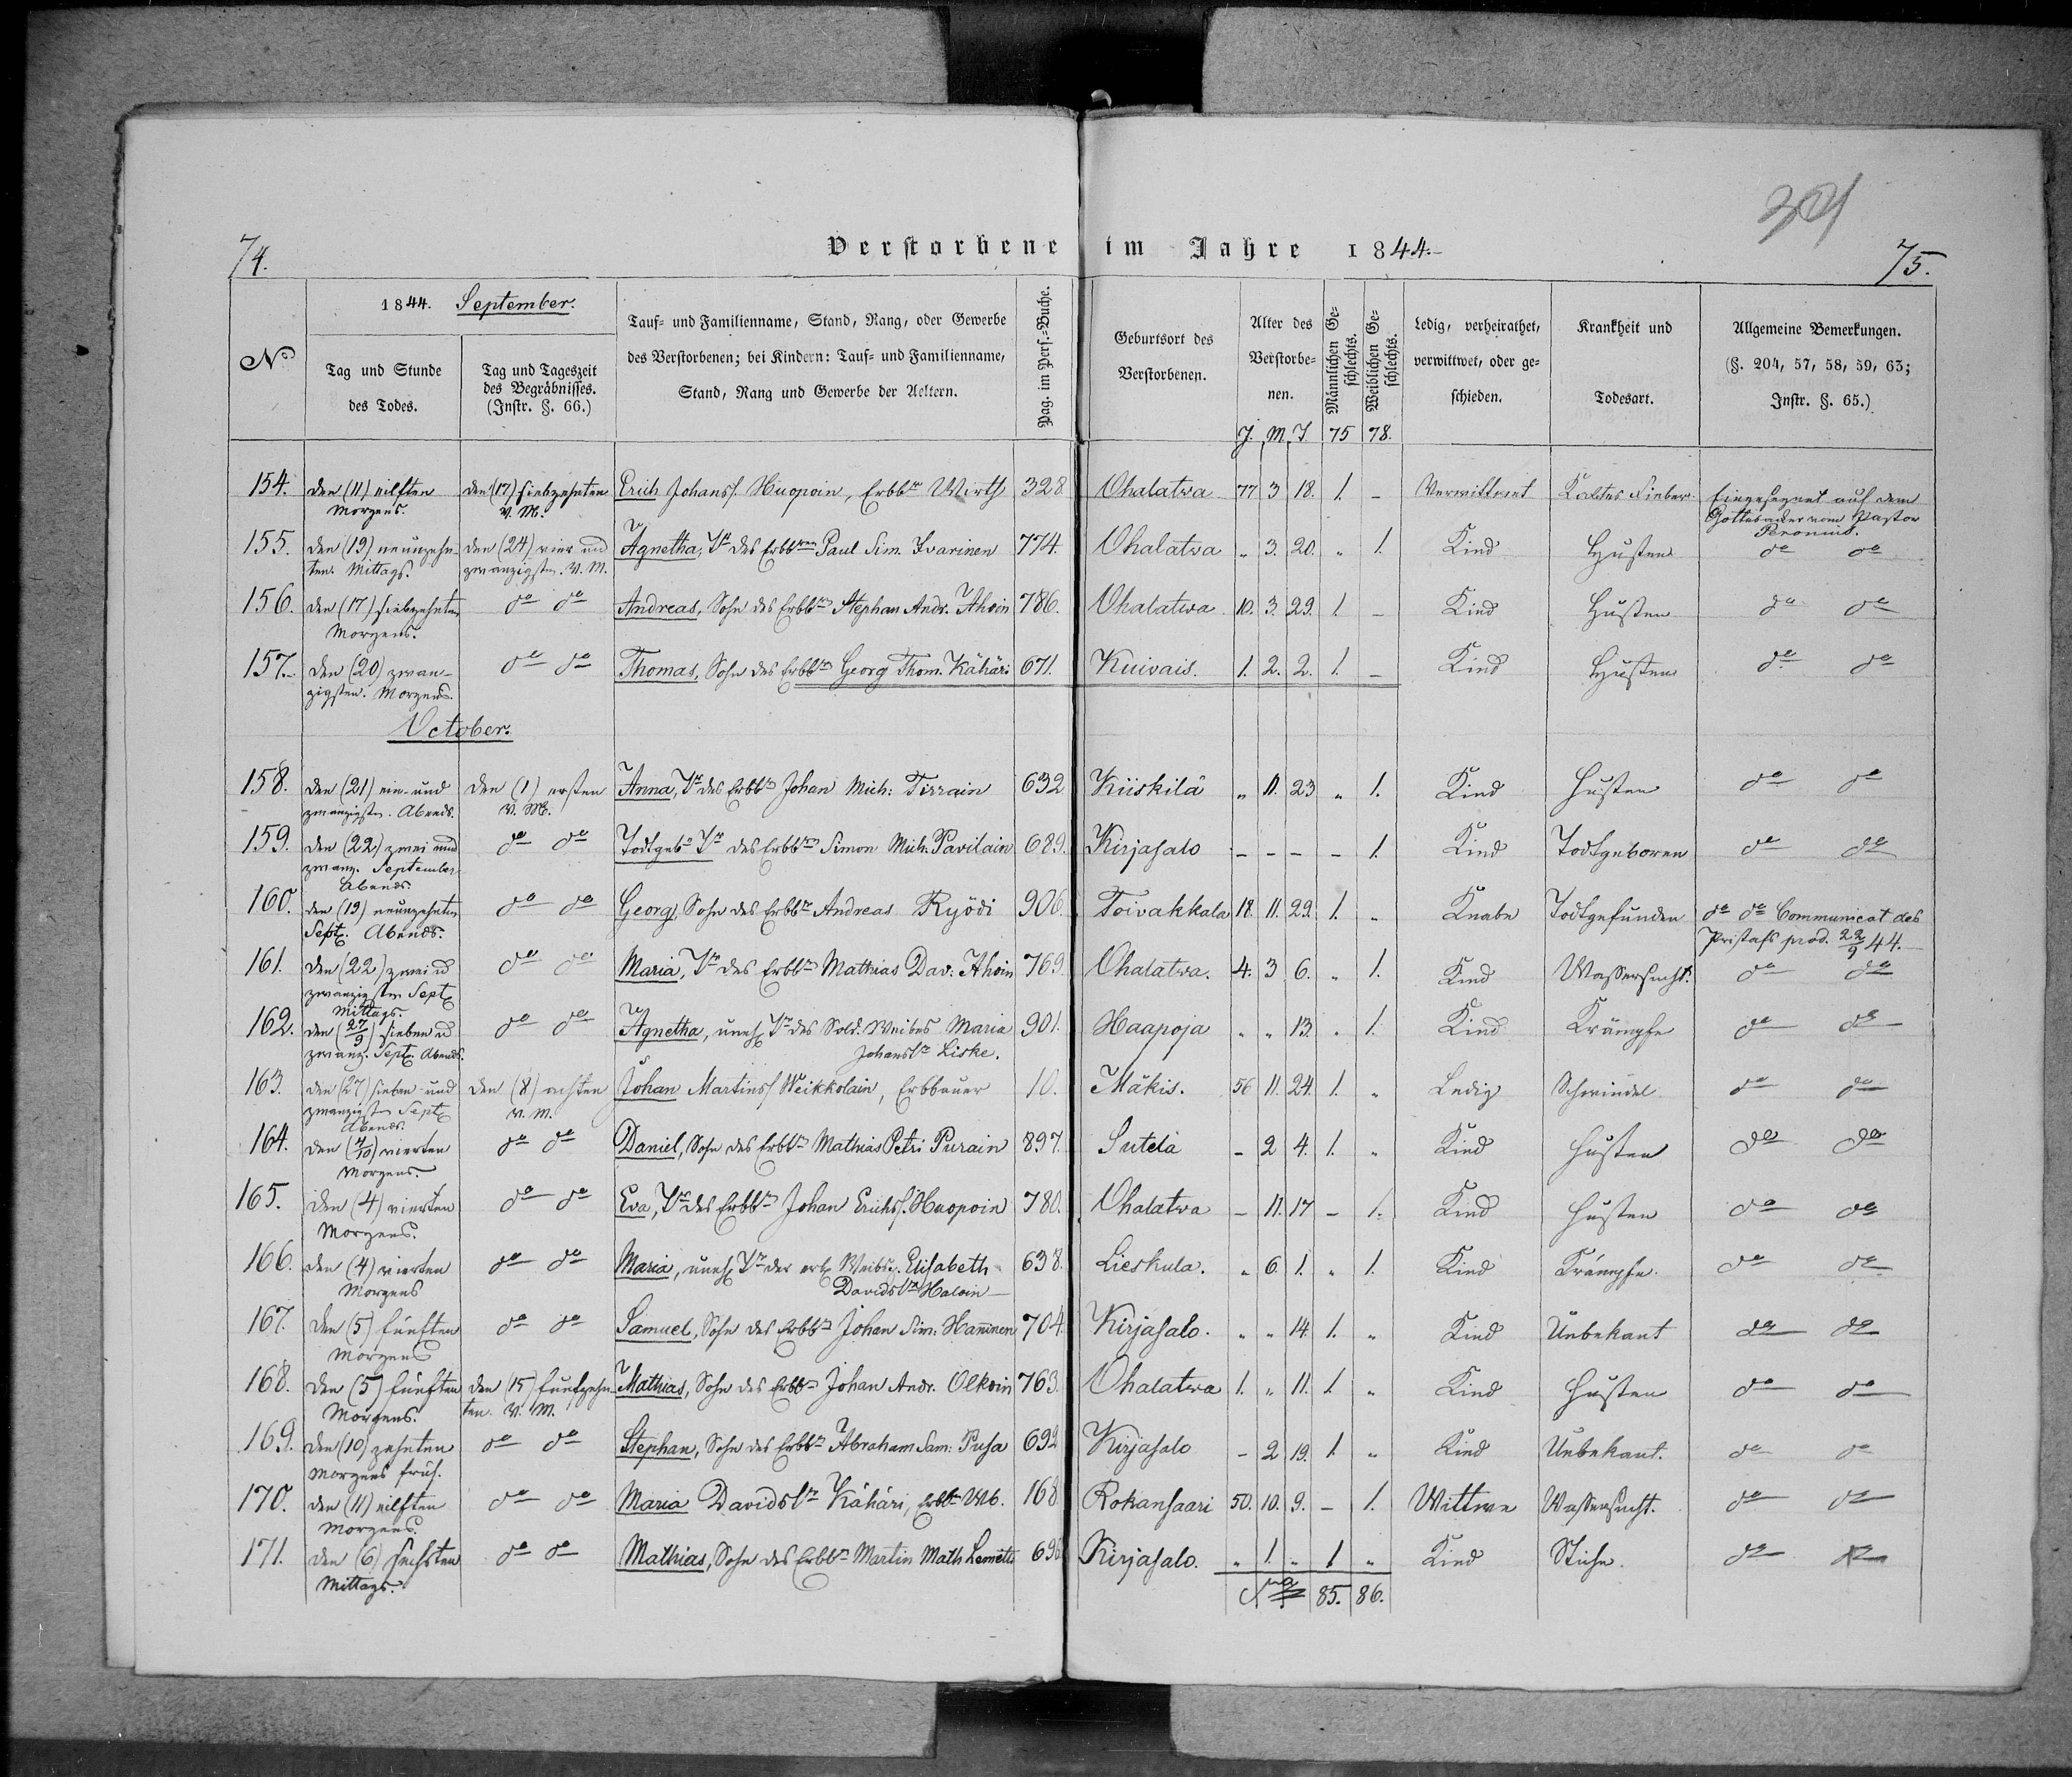 74.
Verstorbene im Jahre 1844.
75.
1844. September.
No
Tag und Stunde des Todes.
Tag und Tageszeit des Begräbnisses. (Instr. §. 66.)
Tauf- und Familienname, Stand, Rang, oder Gewerbe
des Verstorbenen; bei Kindern: Tauf- und Familienname,
Stand, Rang und Gewerbe der Aeltern.
Pag. im Pers.-Buche.
Geburtsort des Verstorbenen.
Alter des Verstorbenen.
J. M. T.
Männlichen Geschlechts. 75
Weiblichen Geschlechts. 78.
Ledig, verheirathet, verwittwet, oder geschieden.
Krankheit und Todesart.
Allgemeine Bemerkungen.
(§. 204, 57, 58, 59, 63;
Instr. §. 65.)
154. den (11) eilften Morgens. den (17) siebzehnten V. M. Erich Johanss. Huopoin, Erbbr Wirth 328 Ohalatwa 77 3 18. 1. - Verwittwet Kaltes Fieber Eingesegnet auf dem Gottesacker vom Pastor
155. den (19) neunzehnten. Mittags. den (24) vier und zwanzigsten. V. M. Agnetha, Tr des Erbbren Paul Sim. Ivarinen 774. Ohalatwa " 3. 20. " 1. Kind Husten do do
156. den (17) siebzehnten Morgens. do do Andreas, Sohn des Erbbrn Stephan Andr. Ihoin 786. Ohalatwa 10. 3. 29. 1. - Kind Husten do do
157. den (20) zwanzigsten. Morgens. do do Thomas, Sohn des Erbbrn Georg Thom. Kähäri 671. Kuivais. 1. 2. 2. 1. - Kind Husten do do
October.
158. den (21) ein- und zwanzigsten. Abends. den (1) ersten V. M. Anna, Tr des Erbbrn Johan Mich: Tirrain 632 Kiiskilä " 11. 23 " 1. Kind Husten do do
159. den (22) zwei und zwanz. September Abends. do do Todtgeb. Tr des Erbbrn Simon Mich. Pavilain 689. Kirjasalo - - - - 1. Kind Todtgeboren do do
160. den (19) neunzehnten Sept. Abends. do do Georg, Sohn des Erbbrn Andreas Ryödi 906. Toivakkala 18. 11. 29. 1. " Knabe Todtgefunden do do Communicat des Pristafs prod. 22/9 44.
161. den (22) zwei u zwanzigsten Sept Mittags. do do Maria, Tr des Erbbrn Mathias Dav: Ihoin 769. Ohalatwa. 4. 3 6. " 1. Kind Wassersucht. do do
162. den (27/9) sieben u zwanz. Sept. Abends. do do Agnetha, uneh. Tr des Sold. Weibes Maria Johanstr Liske. 901. Haapoja " " 13. " 1. Kind Krämpfe do do
163. den (27) sieben und zwanzigsten Sept Abends. den (8) achten V. M. Johan Martinss Weikkolain, Erbbauer 10. Mäkis. 56 11. 24. 1. " Ledig Schwindel do do
164. den (4/10) vierten Morgens. do do Daniel, Sohn des Erbbrn Mathias Petri Purain 897. Sutelä - 2 4. 1. " Kind Husten do do
165. den (4) vierten Morgens. do do Eva, Tr des Erbbrn Johan Erichss. Huopoin 780. Ohalatwa - 11. 17 - 1. Kind Husten do do
166. den (4) vierten Morgens do do Maria, uneh. Tr der Elisabeth Davidstr Haloin 638. Lieskula. " 6. 1. " 1. Kind Krämpfe. do do
167. den (5) fünften Morgens do do Samuel, Sohn des Erbbrn Johan Sim: Haninen 704. Kirjasalo. " " 14. 1. " Kind Unbekant do do
168. den (5) fünften Morgens. den (15) fünfzehnten. V. M. Mathias, Sohn des Erbbrn Johan Andr. Olkoin 763. Ohalatwa 1. " 11. 1. " Kind Husten do do
169. den (10) zehnten Morgens früh. do do Stephan, Sohn des Erbbrn Abraham Sam: Pusa 692 Kirjasalo - 2 19. 1. " Kind Unbekant. do do
170. den (11) eilften Morgens. do do Maria Davidstr Kähäri, Erbbr Wb. 168 Rokansaari 50. 10. 9. - 1. Wittwe Wassersucht. do do
171. den (6) sechsten Mittags. do do Mathias, Sohn des Erbbrn Martin Math 696 Kirjasalo. " 1. " 1 " Kind Stiche. do do
Sma 85. 86.